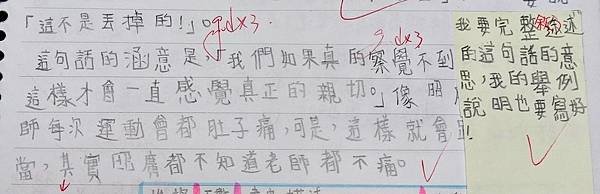 「這不是丟掉的!」。
dx3
dx3
這句話的涵意是,「我們如果真的察覺不到
這樣才會一直感覺真正的親切。」像昭
師每次運動會都肚子痛,可是,這樣就會
當,其實昭廣都不知道老師都不痛。
我要完整敘述
的這句話的意
思,我的舉例
說明也要寫好
!